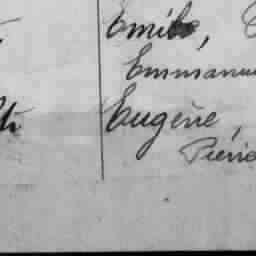 Emile,
Emmanue
Eugène,
Pierre